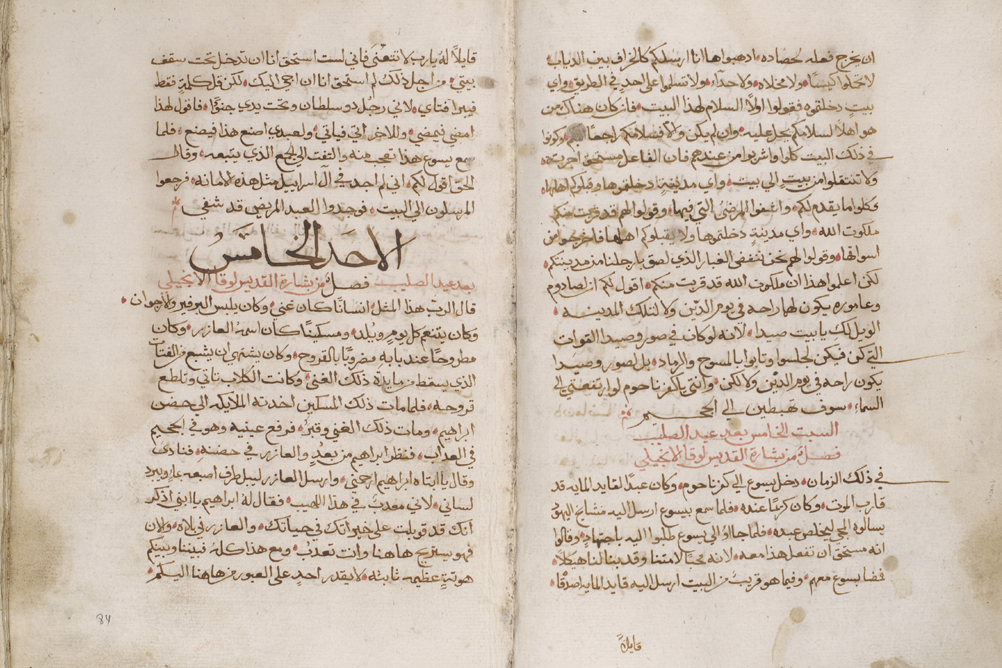 ان يخرج فعله لحصاده اذهبوا هاانا ارسلكم كالخراف بين الدياب
لا تحملوا كيسًا ولا مخلاه ولا حذا ولا تسلموا على احدٍ في الطريق واي
بيتٍ دخلتموه فقولوا اولًا السلام لهذا البيت فان كان هناك من
هو اهلًا لسلامكم يحل عليه وان لم يكن والا فسلامكم راجعًا اليكم وكونوا
في ذلك البيت كلوا واشربوا من عندهم فان الفاعل مستحق اجرته
ولا تنتقلوا من بيتٍ الي بيت واي مدينةٍ دخلتموها وقبلوكم اهلها
فكلوا مما يقدم لكم واشفوا المرضي التي فيها وقولوا لهم قد قربت منكم
ملكوت الله واي مدينةٍ دخلتموها ولا يقبلوكم اهلها فاخرجوا من
اسواقها وقولوا لهم نحن ننفض الغبار الذي لصق بارجلنا من مدينتكم
لكن اعلموا هذا ان ملكوت الله قد قربت منكم اقول لكم ان لصادوم
وعاموره يكون لهما راحه في يوم الدين ولا لتلك المدينه
الويل لك يا بيت صيدا لانه لو كان في صور وصيدا القوات
التي كن فيكن لجلسوا وتابوا بالمسوح والرماد بل لصور وصيدا
يكون راحه في يوم الدين ولا لكن وانتي يا كفرناحوم لو ارتفعتي الي
السماء سوف تهبطين الي الجحيم
السبت الخامس بعد عيد الصليب
فصلٌ من بشارة القديس لوقا الانجيلي
في ذلك الزمان دخل يسوع الي كفرناحوم وكان عبدًا لقايد المايه قد
قارب الموت وكان كريمًا عنده فلما سمع بيسوع ارسل اليه مشايخ اليهود
يسالوه المجي ليخلص عبده فلما جاؤا الي يسوع طلبوا اليه باجتهادٍ وقالوا
انه مستحق ان تفعل هذا معه لانه محبًا لامتنا وقد بنا لنا هيكلًا
فمضا يسوع معهم وفيما هو قريب من البيت ارسل اليه قايد المايه اصدقا
قايلًا
قايلًا له يارب لا تتعنّى فاني لست استحق انا ان تدخل تحت سقف
بيتي من اجل ذلك لم استحق انا ان اجي اليك لكن قل كلمة فقط
فيبرا فتاي لاني رجل ذو سلطان وتحت يدي جندًا فاقول لهذا
امضي فيمضي وللاخر اتي فياتي ولعبدي اصنع هذا فيصنع فلما
سمع يسوع هذا تعجب منه والتفت الي الجمع الذي يتبعه وقال
الحق اقول لكم اني لم اجد في آل اسراييل مثل هذه الامانه فرجعوا
المرسلون الي البيت فوجدوا العبد المريض قد شفي
الاحد الخامس
بعد عيد الصليب فصلٌ من بشارة القديس لوقا الانجيلي
قال الرب هذا المثل انسانًا كان غني وكان يلبس البرفير والارجوان
وكان يتنعم كل يوم ويلذ ومسكينًا كان اسمه العازر وكان
مطروحًا عند بابه مضروبًا بالقروح وكان يشتهي ان يشبع من الفتات
الذي يسقط من مايدة ذلك الغني وكانت الكلاب تاتي وتلطع
قروحه فلما مات ذلك المسكين اخذته الملايكه الي حضن
ابراهيم ومات ذلك الغني وقبر فرفع عينيه وهو في الجحيم
في العذاب فنظر ابراهيم من بعدٍ والعازر في حضنه فنادي
وقال يا ابتاه ابراهيم ارحمني وارسل العازر ليبل طرف اصبعه بما ويبرد
لساني لاني معذبٌ في هذا اللهيب فقال له ابراهيم يا ابني اذكر
انك قد قوبلت علي خيراتك في حياتك والعازر في بلاه والان
فهو يستريح هاهنا وانت تعذب ومع هذا كله فبيننا وبينكم
هوةٍ عظيمه ثابته لا يقدر احد علي العبور من هاهنا اليكم
84